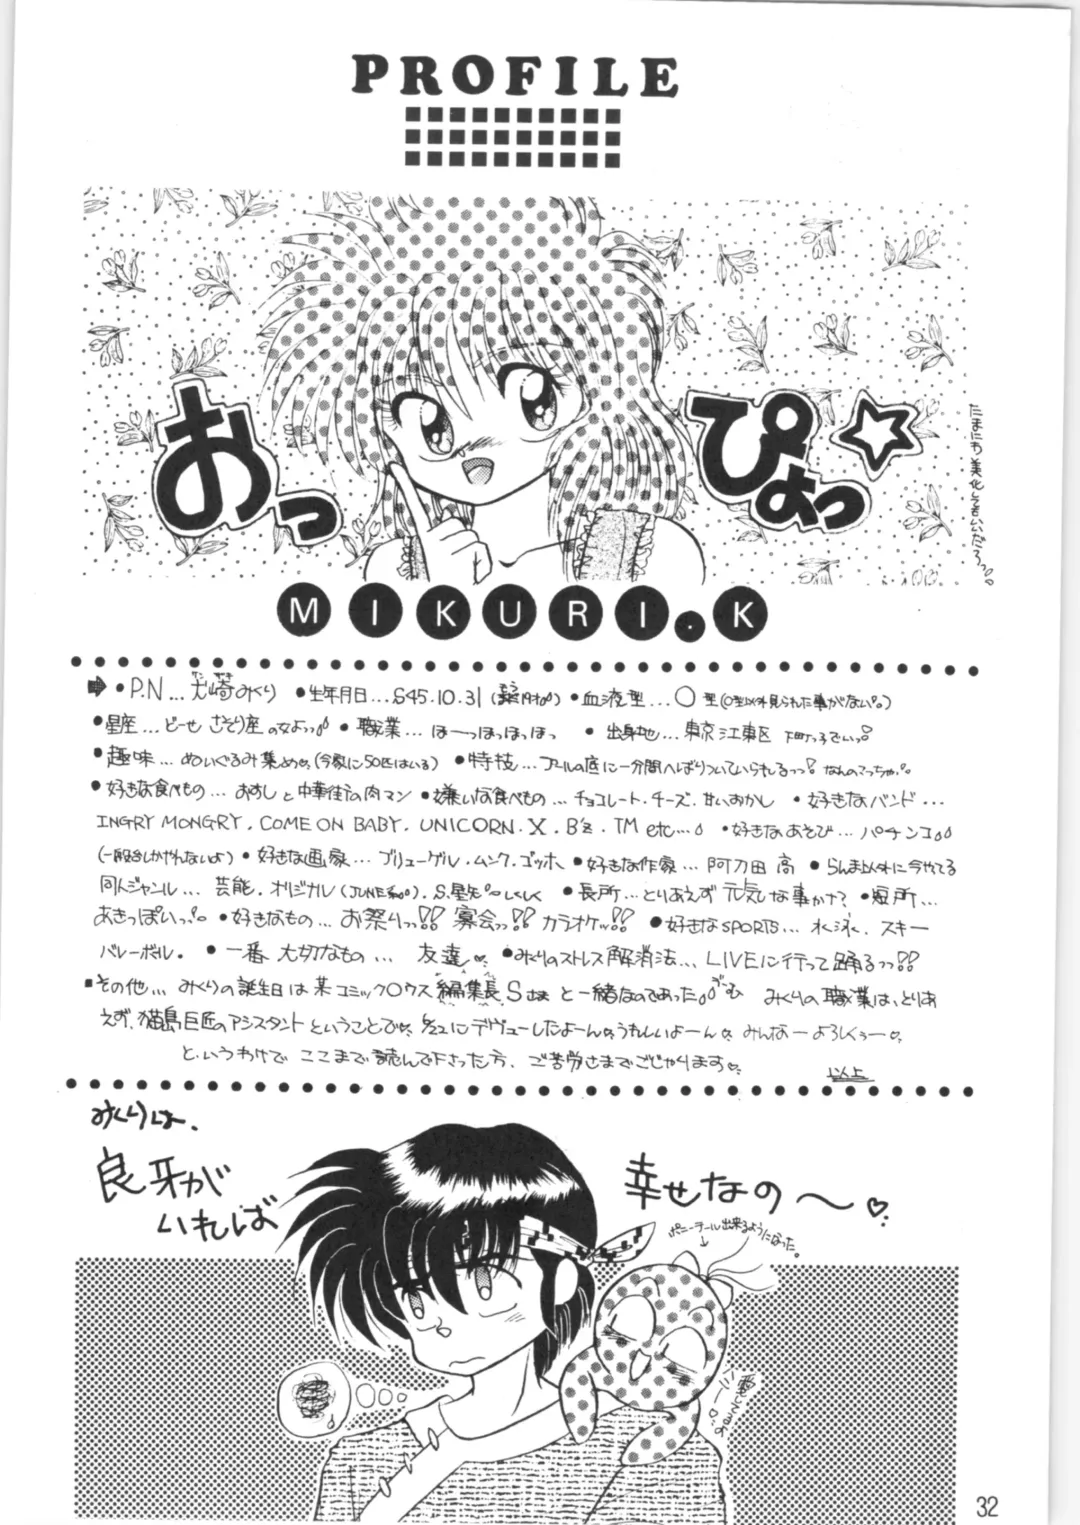 PROFILE
おっ
ぴょっ☆
たまにわ美化してもいいだろっ
MIKURI.K
・P.N… 犬崎みくり ・生年月日…S45.10.31 ・血液型…○型(○型以外見られた事がない)
・星座…どーせ さそり座の女よっ ・職業…ほーっほっほっほっ ・出身地…東京江東区 下町っ子でいっ
・趣味…ぬいぐるみ集め(今家に50匹はいる) ・特技…プールの底に一分間へばりついていられるっっ! なんのこっちゃ
・好きな食べもの…おすしと中華街の肉マン ・嫌いな食べもの…チョコレート・チーズ、甘いおかし ・好きなバンド…
INGRY MONGRY. COME ON BABY. UNICORN. X. B'z. TM etc… ・好きなあそび…パチンコ
(一般台しかやれないよ) ・好きな画家…ブリューゲル・ムンク・ゴッホ ・好きな作家…阿刀田 高 ・らんま以外に今やてる
同人ジャンル…芸能.オリジナル(JUNE系).S.星矢 ・長所…とりあえず元気な事かナ? ・短所…
あきっぽいっ ・好きなもの…お祭りっ!! 宴会っ!! カラオケッ!! ・好きなSPORTS…水泳. スキー
バレーボール. ・一番大切なもの… 友達♡ ・みくりのストレス解消法…LIVEに行って踊るっ!!
・その他…みくりの誕生日は某コミック○ウス編集長Sさまと一緒なのであった みくりの職業は、とりあ
えず、猫島巨匠のアシスタントということで♡ デヴューしたよーん♡うれしいよーん♡みんなーよろしくぅー♡
というわけで ここまで読んで下さった方、ご苦労さまでごじゃります♡ 以上
みくりは、
良牙が
いれば
幸せなの〜♡
ポニーテール出来るようになった。
32